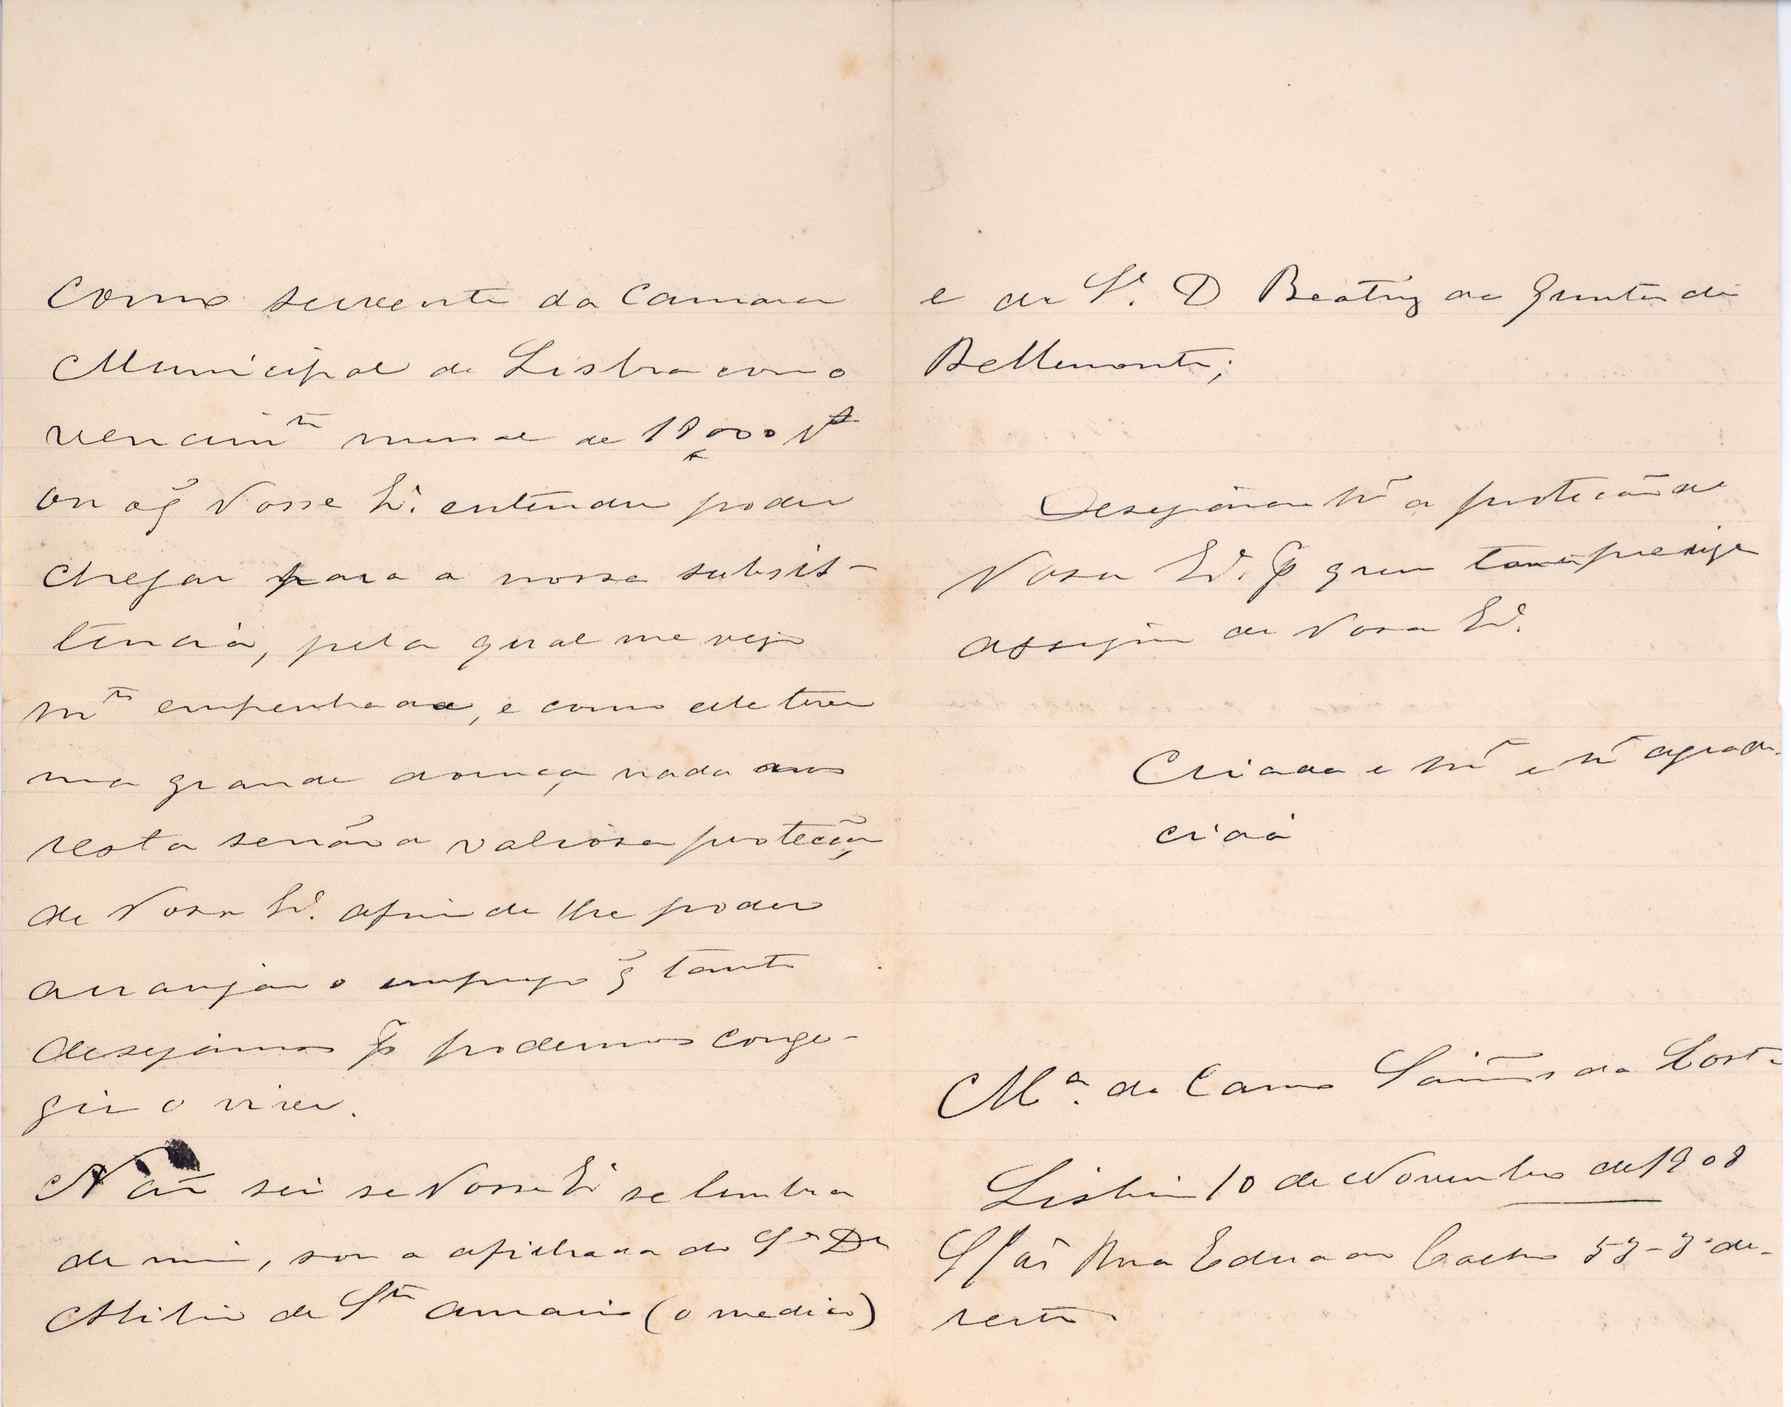 como servente da Camara
Municipal de Lisboa com o
vencim.to mensal de 18$000 r.s
ou o q̃ Vossa Ex.ª entender poder
chegar para a nossa subsis-
tencia, pela qual me vejo
m.to empenhada, e como elle teve
uma grande doença nada nos
resta senão a valiosa protecção
de Vossa Ex.ª afim de lhe poder
arranjar o emprego q̃ tanto
desejâmos p.ª podermos conse-
guir o viver.
Não sei se Vossa Ex.ª se lembra
de mim, sou a afilhada do S.r D.r
Abilio de S.to Amaro (o medico)
e da S.ª D Beatriz da Quinta de
Bellemonte;
Desejâmos m.to a protecção de
Vossa Ex.ª p.ª quem
de Vossa Ex.ª
Criada e m.to e m.to agrade-
cida
M.ª do Carmo da Costa
Lisboa 10 de Novembro de 1908
S/c Rua Eduardo Coelho 53-3º di-
reito